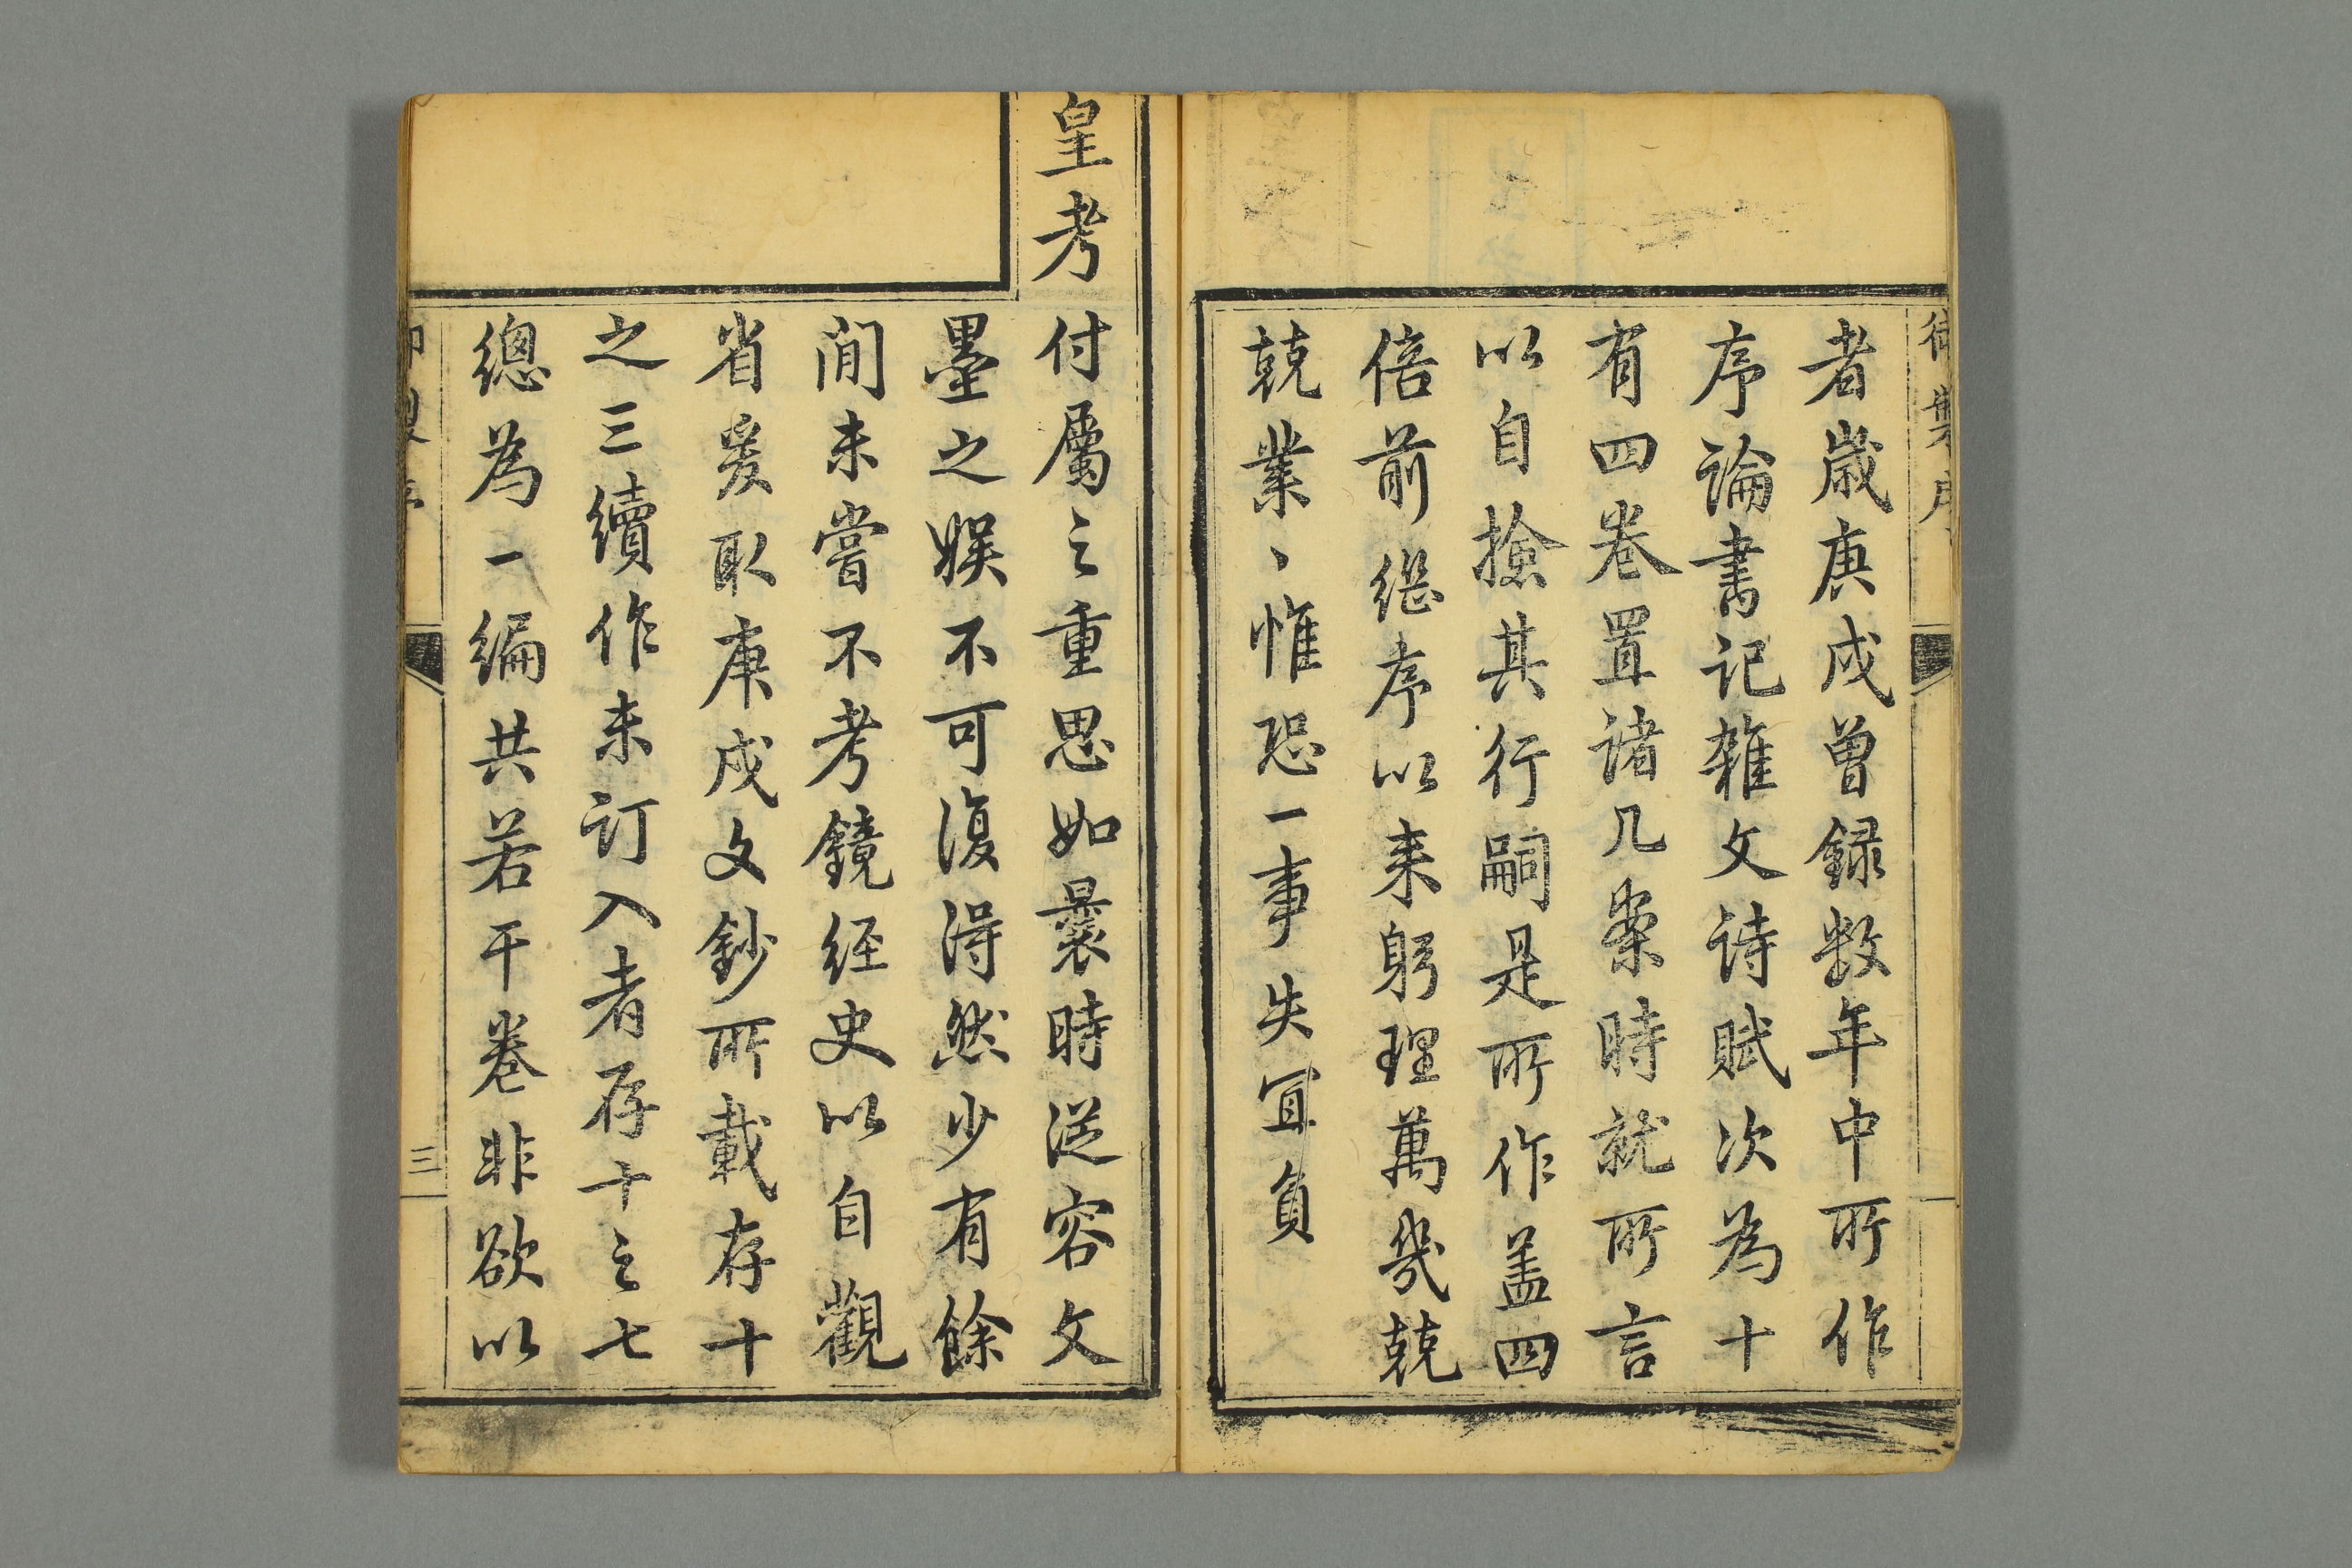 御製序
者歲庚戌曾録数年中所作
序論書記雜文詩賦次為十
有四卷置諸几案時就所言
以自撿其行嗣是所作盖四
倍前繼序以来躬理萬㡬兢
兢業丶惟恐一事失冝負
皇考付屬之重思如曩時從容文
墨之娱不可復得然少有餘
閒未嘗不考鏡經史以自觀
省爰取庚戌文鈔所載存十
之三續作未訂入者存十之七
總為一編共若干卷非欲以
三